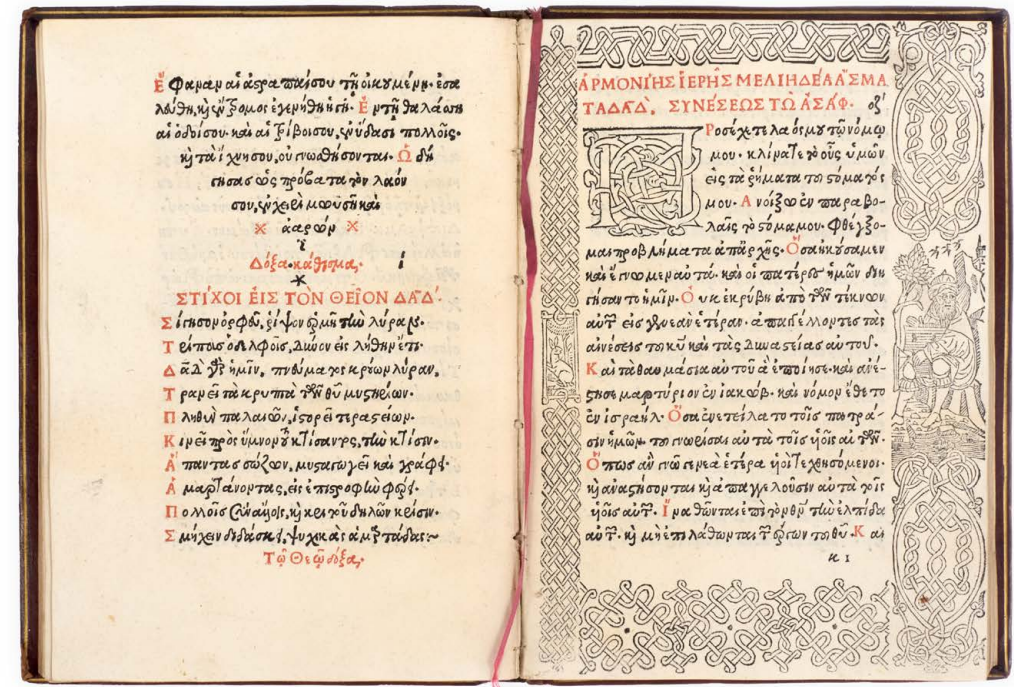 Ἔφαναν αἱ ἀστραπαί σου τῇ οἰκουμένῃ· ἐσα
λεύθη, κỳ ἔντρομος ἐγενήθη ἡ γῆ· Ἐν τῇ θαλάσσῃ
αἱ ὁδοί σου· καὶ αἱ τρίβοι σου, ἐν ὕδασι πολλοῖς·
κỳ τὰ ἴχνη σου, οὐ γνωσθήσονται· Ὡδή
γησας ὡς πρόβατα τὸν λαόν
σου, ἐν χειρὶ μωυσῆ καὶ
ἀαρών
Δόξα· κάθισμα·
ΣΤΙΧΟΙ ἘΙΣ ΤῸΝ ΘΕΙ͂ΟΝ ΔΑ͞Δ·
Σίγησον ὀρφεῦ, ῥίψον ἑρμῆ τὴν λύραν·
Τρίπους ὁ δελφοῖς, δύνον εἰς λήθην ἔτι·
Δα͞δ γὰρ ἡμῖν, πνεύματος κρούων λύραν,
Τρανεῖ τὰ κρυπτὰ τῶν θεοῦ μυστηρίων·
Πλήθη παλαιῶν, ἱστορεῖ τεραστείων·
Κινεῖ πρὸς ὕμνον τοῦ κτίσαντος, τὴν κτίσιν·
Ἅπαντας σώζων, μυσταγωγεῖ καὶ γράφει·
Ἁμαρτάνοντας, εἰς ἐπιστροφὴν φέρει·
Πολλοῖς σὺν ἄλλοις, κỳ κριτοῦ δηλῶν κρίσιν·
Σμήχειν διδάσκει, ψυχικὰς ἁμαρτάδας:~
Τῷ Θεῷ δόξα·
ἉΡΜΟΝΙΉΣ ἹΕΡΗ͂Σ ΜΕΛΙΗΔΈΑ ἌΣΜΑ
ΤΑ ΔΑ͞Δ, ΣΥΝΈΣΕΩΣ ΤΩ͂ ἈΣΆΦ· οζ´
Προσέχετε λαός μου τῷ νόμῳ
μου· κλίνατε τὸ οὖς ὑμῶν
εἰς τὰ ῥήματα τοῦ στόματός
μου· Ἀνοίξω ἐν παραβο-
λαῖς τὸ στόμα μου· φθέγξο-
μαι προβλήματα ἀπ' ἀρχῆς· Ὅσα ἠκούσαμεν
καὶ ἔγνωμεν αὐτά· καὶ οἱ πατέρες ἡμῶν διη
γήσαντο ἡμῖν· Οὐκ ἐκρύβη ἀπὸ τῶν τέκνων
αὐτῶν εἰς γενεὰν ἑτέραν· ἀπαγγέλλοντες τὰς
αἰνέσεις τοῦ κυ͞ καὶ τὰς δυναστείας αὐτοῦ·
Καὶ τὰ θαυμάσια αὐτοῦ ἃ ἐποίησε· καὶ ἀνέ-
στησε μαρτύριον ἐν ἰακώβ· καὶ νόμον ἔθετο
ἐν ισραήλ· Ὅσα ἐνετείλατο τοῖς πατρά-
σιν ἡμῶν· τοῦ γνωρίσαι αὐτὰ τοῖς υἱοῖς αὐτῶν·
Ὅπως ἂν γνῷ γενεὰ ἑτέρα υἱοὶ τεχθησόμενοι·
κỳ ἀναστήσονται κỳ ἀπαγγελοῦσιν αὐτὰ τοῖς
υἱοῖς αὐτῶν· Ἵνα θῶνται ἐπὶ τὸν θν͞ τὴν ἐλπίδα
αὐτῶν· κỳ μὴ ἐπιλάθωνται τῶν ἔργων τοῦ θυ͞· Καὶ
κ ι